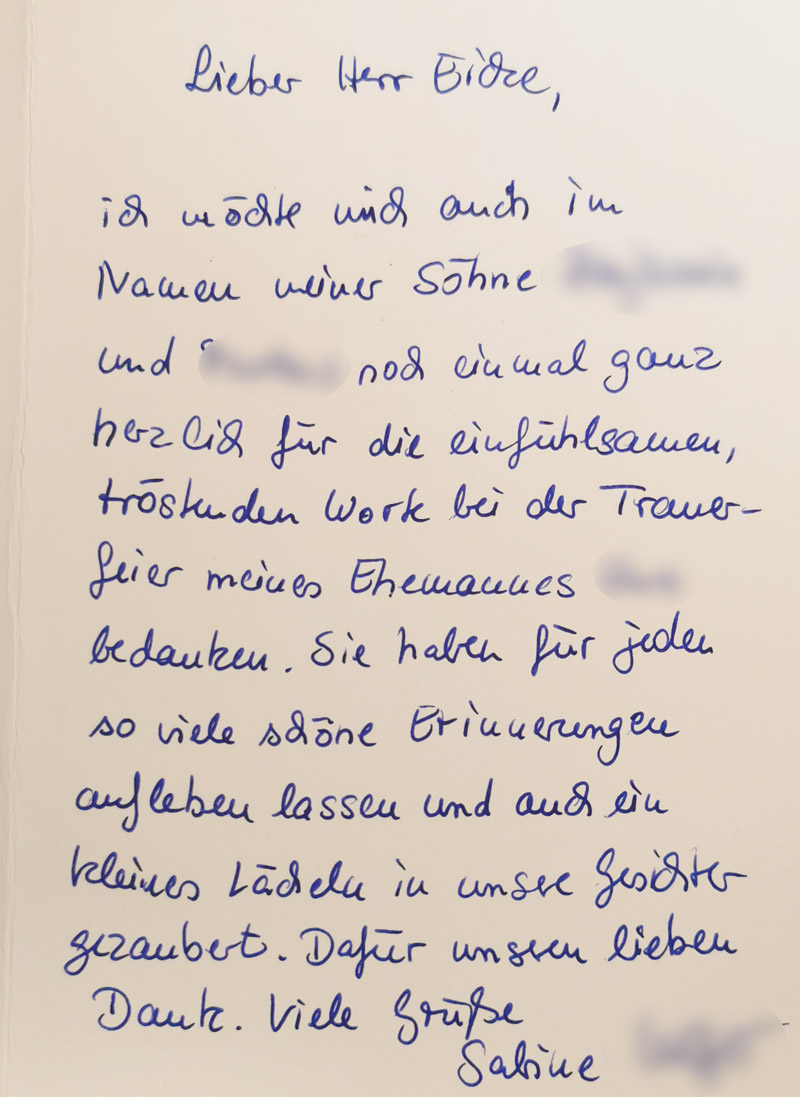 Lieber Herr Eidre,
ich möchte mich auch im
Namen meiner Söhne
und noch einmal ganz
herzlich für die einfühlsamen,
tröstenden Worte bei der Trauer-
feier meines Ehemannes
bedanken. Sie haben für jeden
so viele schöne Erinnerungen
aufleben lassen und auch ein
kleines Lächeln in unsere Gesichter
gezaubert. Dafür unseren lieben
Dank. Viele Grüße
Sabine